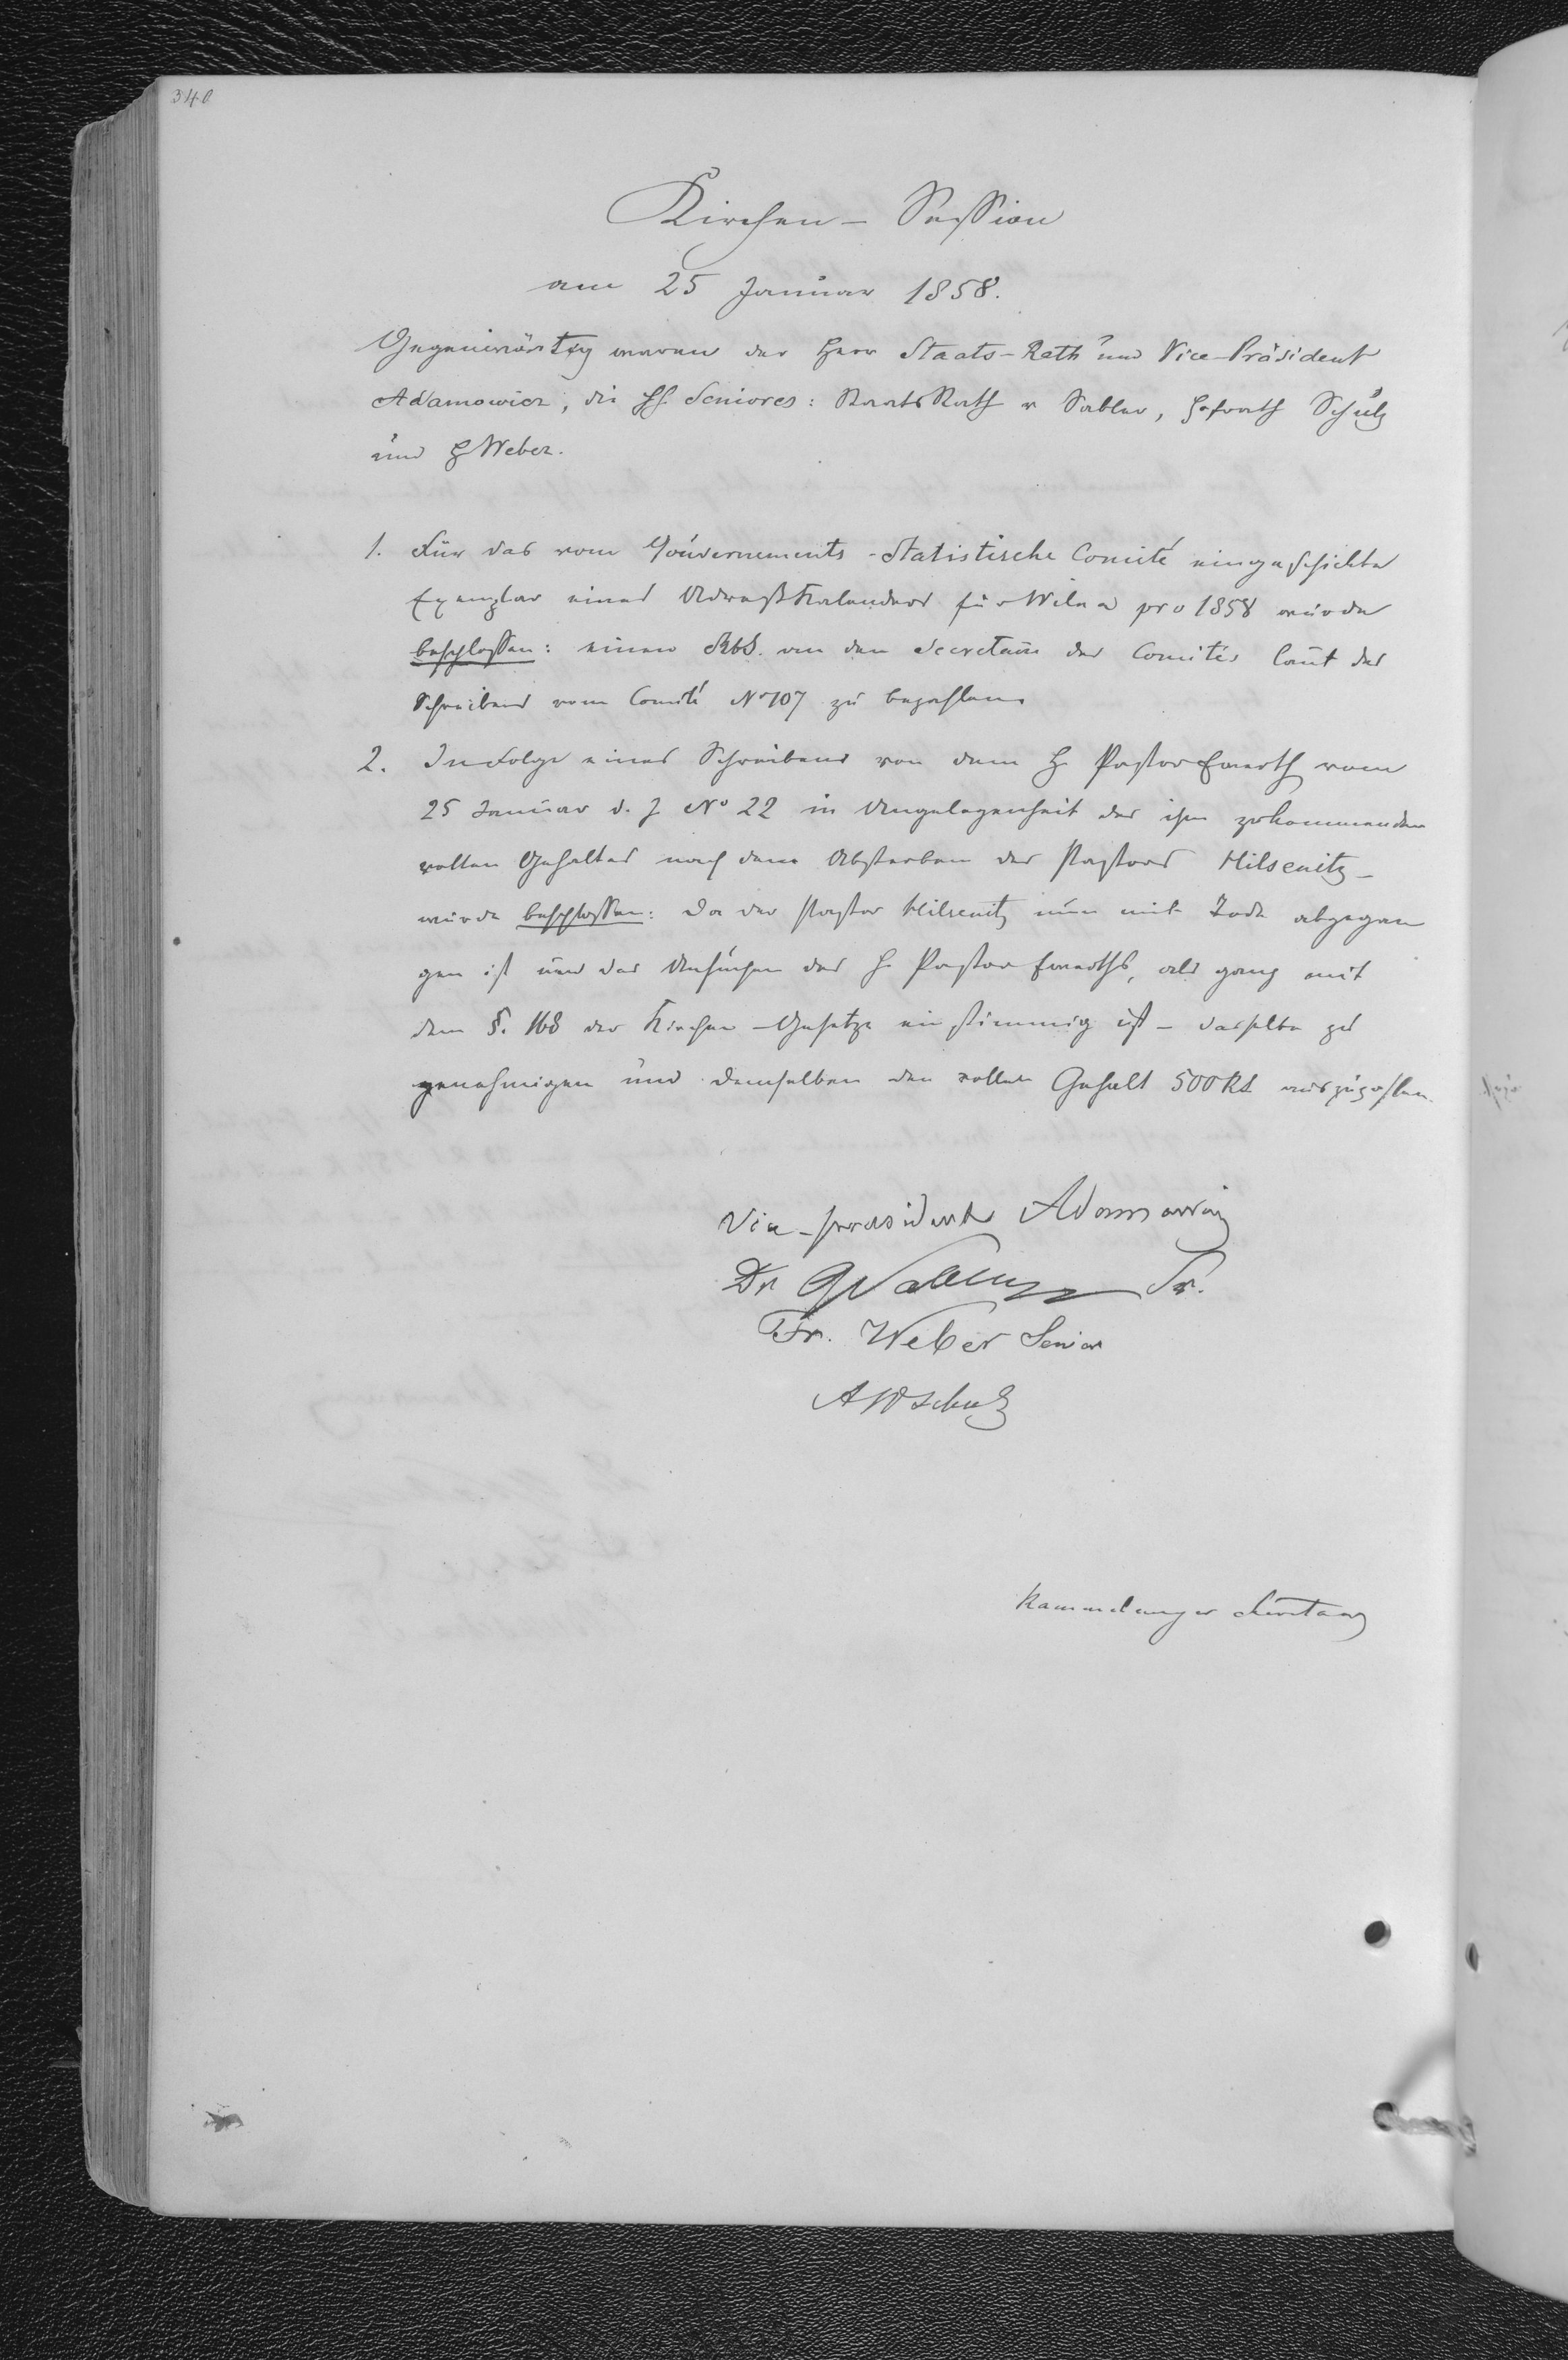 340
Kirchen-Session
am 25 Januar 1858.
Gegenwärtig waren der Herr Staats-Rath und Vice-Präsident
Adamowicz, die HH. Seniores: StaatsRath v Sabler, Hofrath Schulz
und H Weber.
1. Für das vom Gouvernements-Statistische Comité eingeschickte
Exemplar eines Adreßkalenders für Wilna pro 1858 wurde
beschlossen: einen Rbl. an den Secretair des Comités laut des
Schreibens vom Comité No 107 zu bezahlen.
2. In Folge eines Schreibens von dem H. Pastor Ewerth vom
25 Januar d. J. No 22 in Angelegenheit des ihm zukommenden
vollen Gehaltes nach dem Absterben des Pastors Hilsenitz -
wurde beschlossen: Da der Pastor Hilsenitz nun mit Tode abgegan
gen ist und das Ansuchen des H. Pastor Ewerths, als ganz mit
dem §. 168 der Kirchen-Gesetze einstimmig ist - dasselbe zu
genehmigen und demselben den vollen Gehalt 500 RS auszuzahlen.
Vice-praesident Adamowicz
Dr Sr.
Fr. Weber Senior
A W Schulz
Secretair